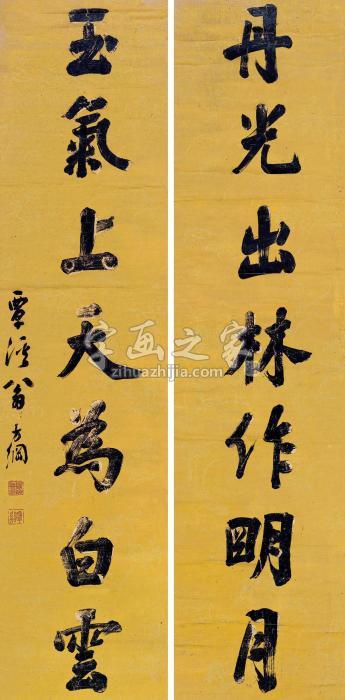 丹光出林作明月
玉氣上天為白雲
覃溪翁方綱
字画之家
zihuazhijia.com